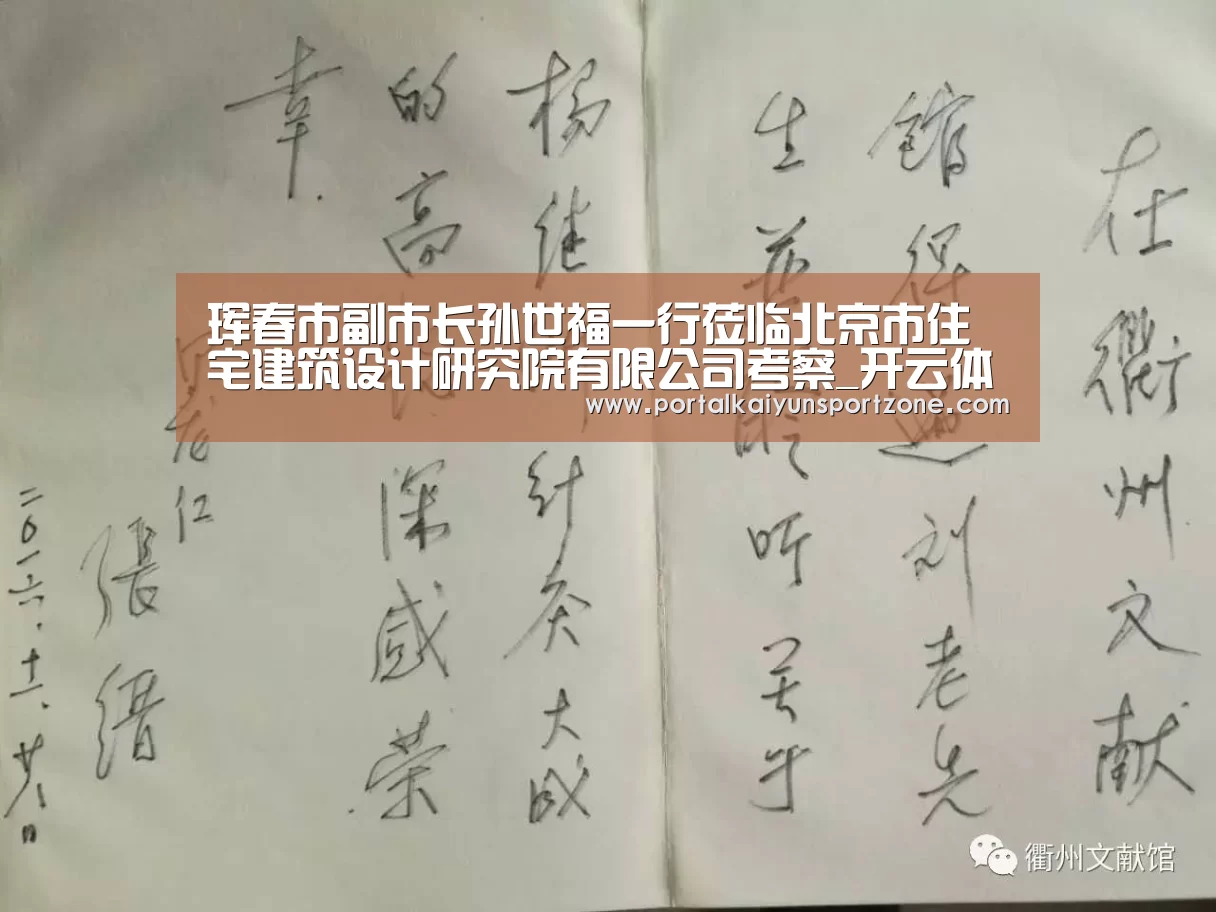 在衢州文献
館得遇刘老先
生并聆听关于
杨继针灸大成
的高深感荣
幸.
張缙
二0一六.十一.廿八日
珲春市副市长孙世福一行莅临北京市住
宅建筑设计研究院有限公司考察_开云体
www.portalkaiyunsportzone.com
衢州文献馆